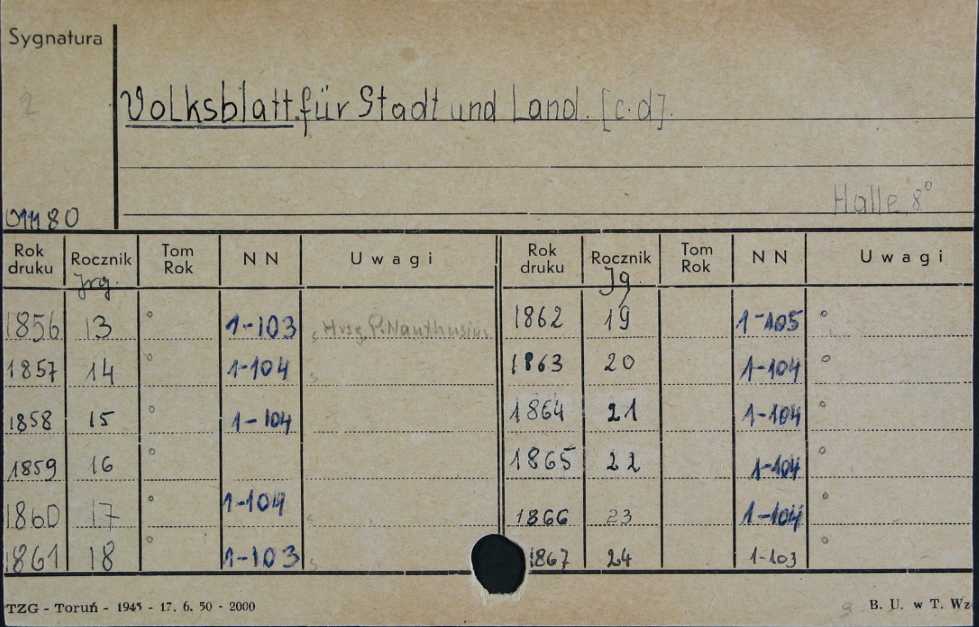 Sygnatura
2
Volksblatt für Stadt und Land. [c.d].
Halle 8°
01180
Rok druku Rocznik Tom Rok NN Uwagi Rok druku Rocznik Tom Rok NN Uwagi
Jrg. Jg.
1856 13 ° 1-103 Hrsg. P. Nauthusius 1862 19 1-105 °
1857 14 ° 1-104 1863 20 1-104 °
1858 15 ° 1-104 1864 21 1-104 °
1859 16 ° 1865 22 1-104 °
1860 17 ° 1-104 1866 23 1-104 °
1861 18 ° 1-103 1867 24 1-103 °
TZG - Toruń - 1945 - 17. 6. 50 - 2000 B. U. w T. Wz